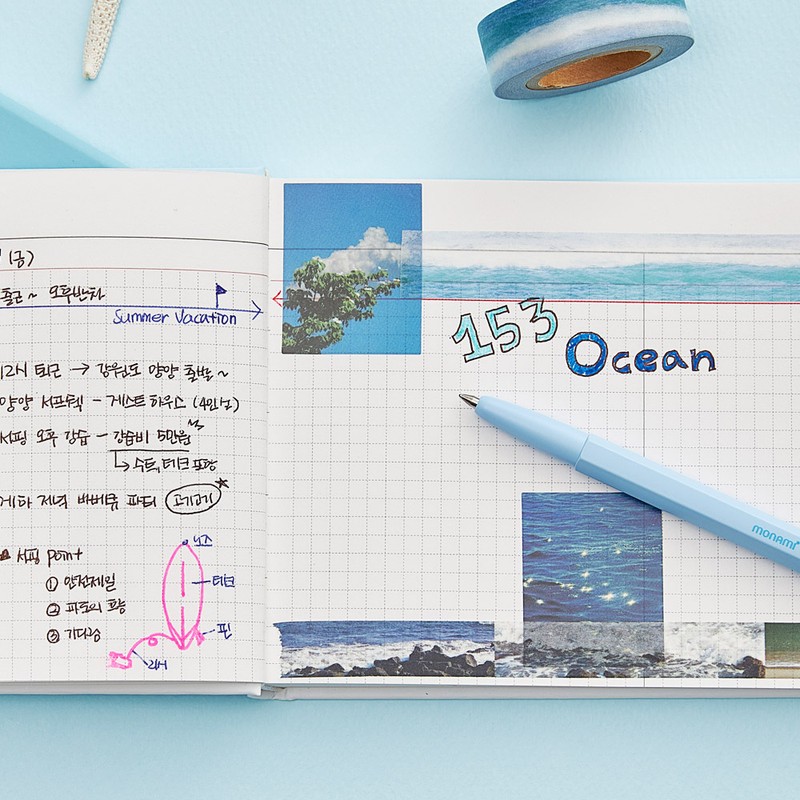 (금)
출근~ 오후반차
Summer Vacation
12시 퇴근 → 강원도 양양 출발~
양양 서프텍 - 게스트하우스 (4인실)
서핑 오후 강습 - 강습비 5만원
↳ 수트, 테크 포함
게하 저녁 바베큐 파티 고기고기
서핑 point
① 안전제일
② 파도의 흐름
③ 기다림
노즈
테크
핀
리시
153
Ocean
monami